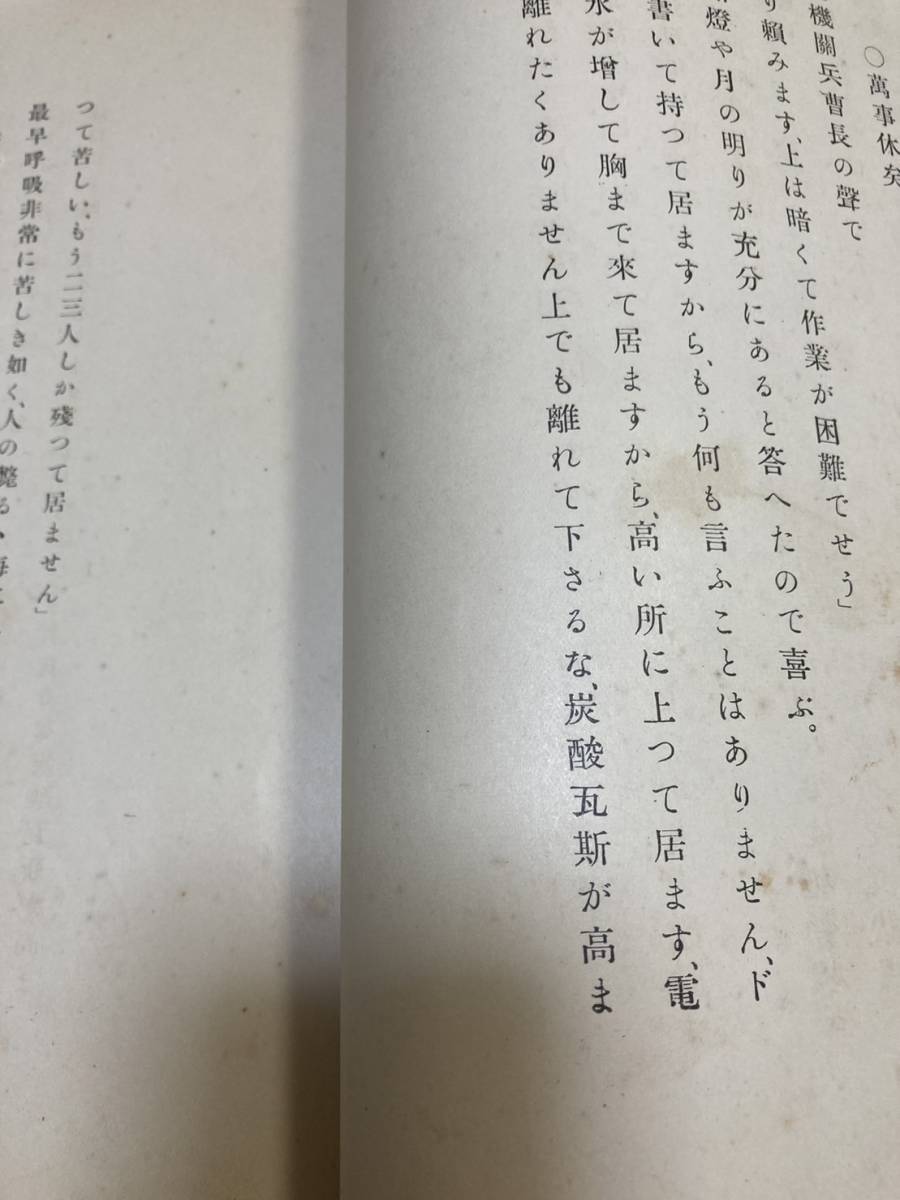 ○萬事休矣
機關兵曹長の聲で
り賴みます、上は暗くて作業が困難でせう」
燈や月の明りが充分にあると答へたので喜ぶ。
書いて持つて居ますから、もう何も言ふことはありません、ド
水が增して胸まで來て居ますから、高い所に上つて居ます、電
離れたくありません上でも離れて下さるな、炭酸瓦斯が高ま
つて苦しい、もう二三人しか殘つて居ません」
最早呼吸非常に苦しき如く、人の斃る